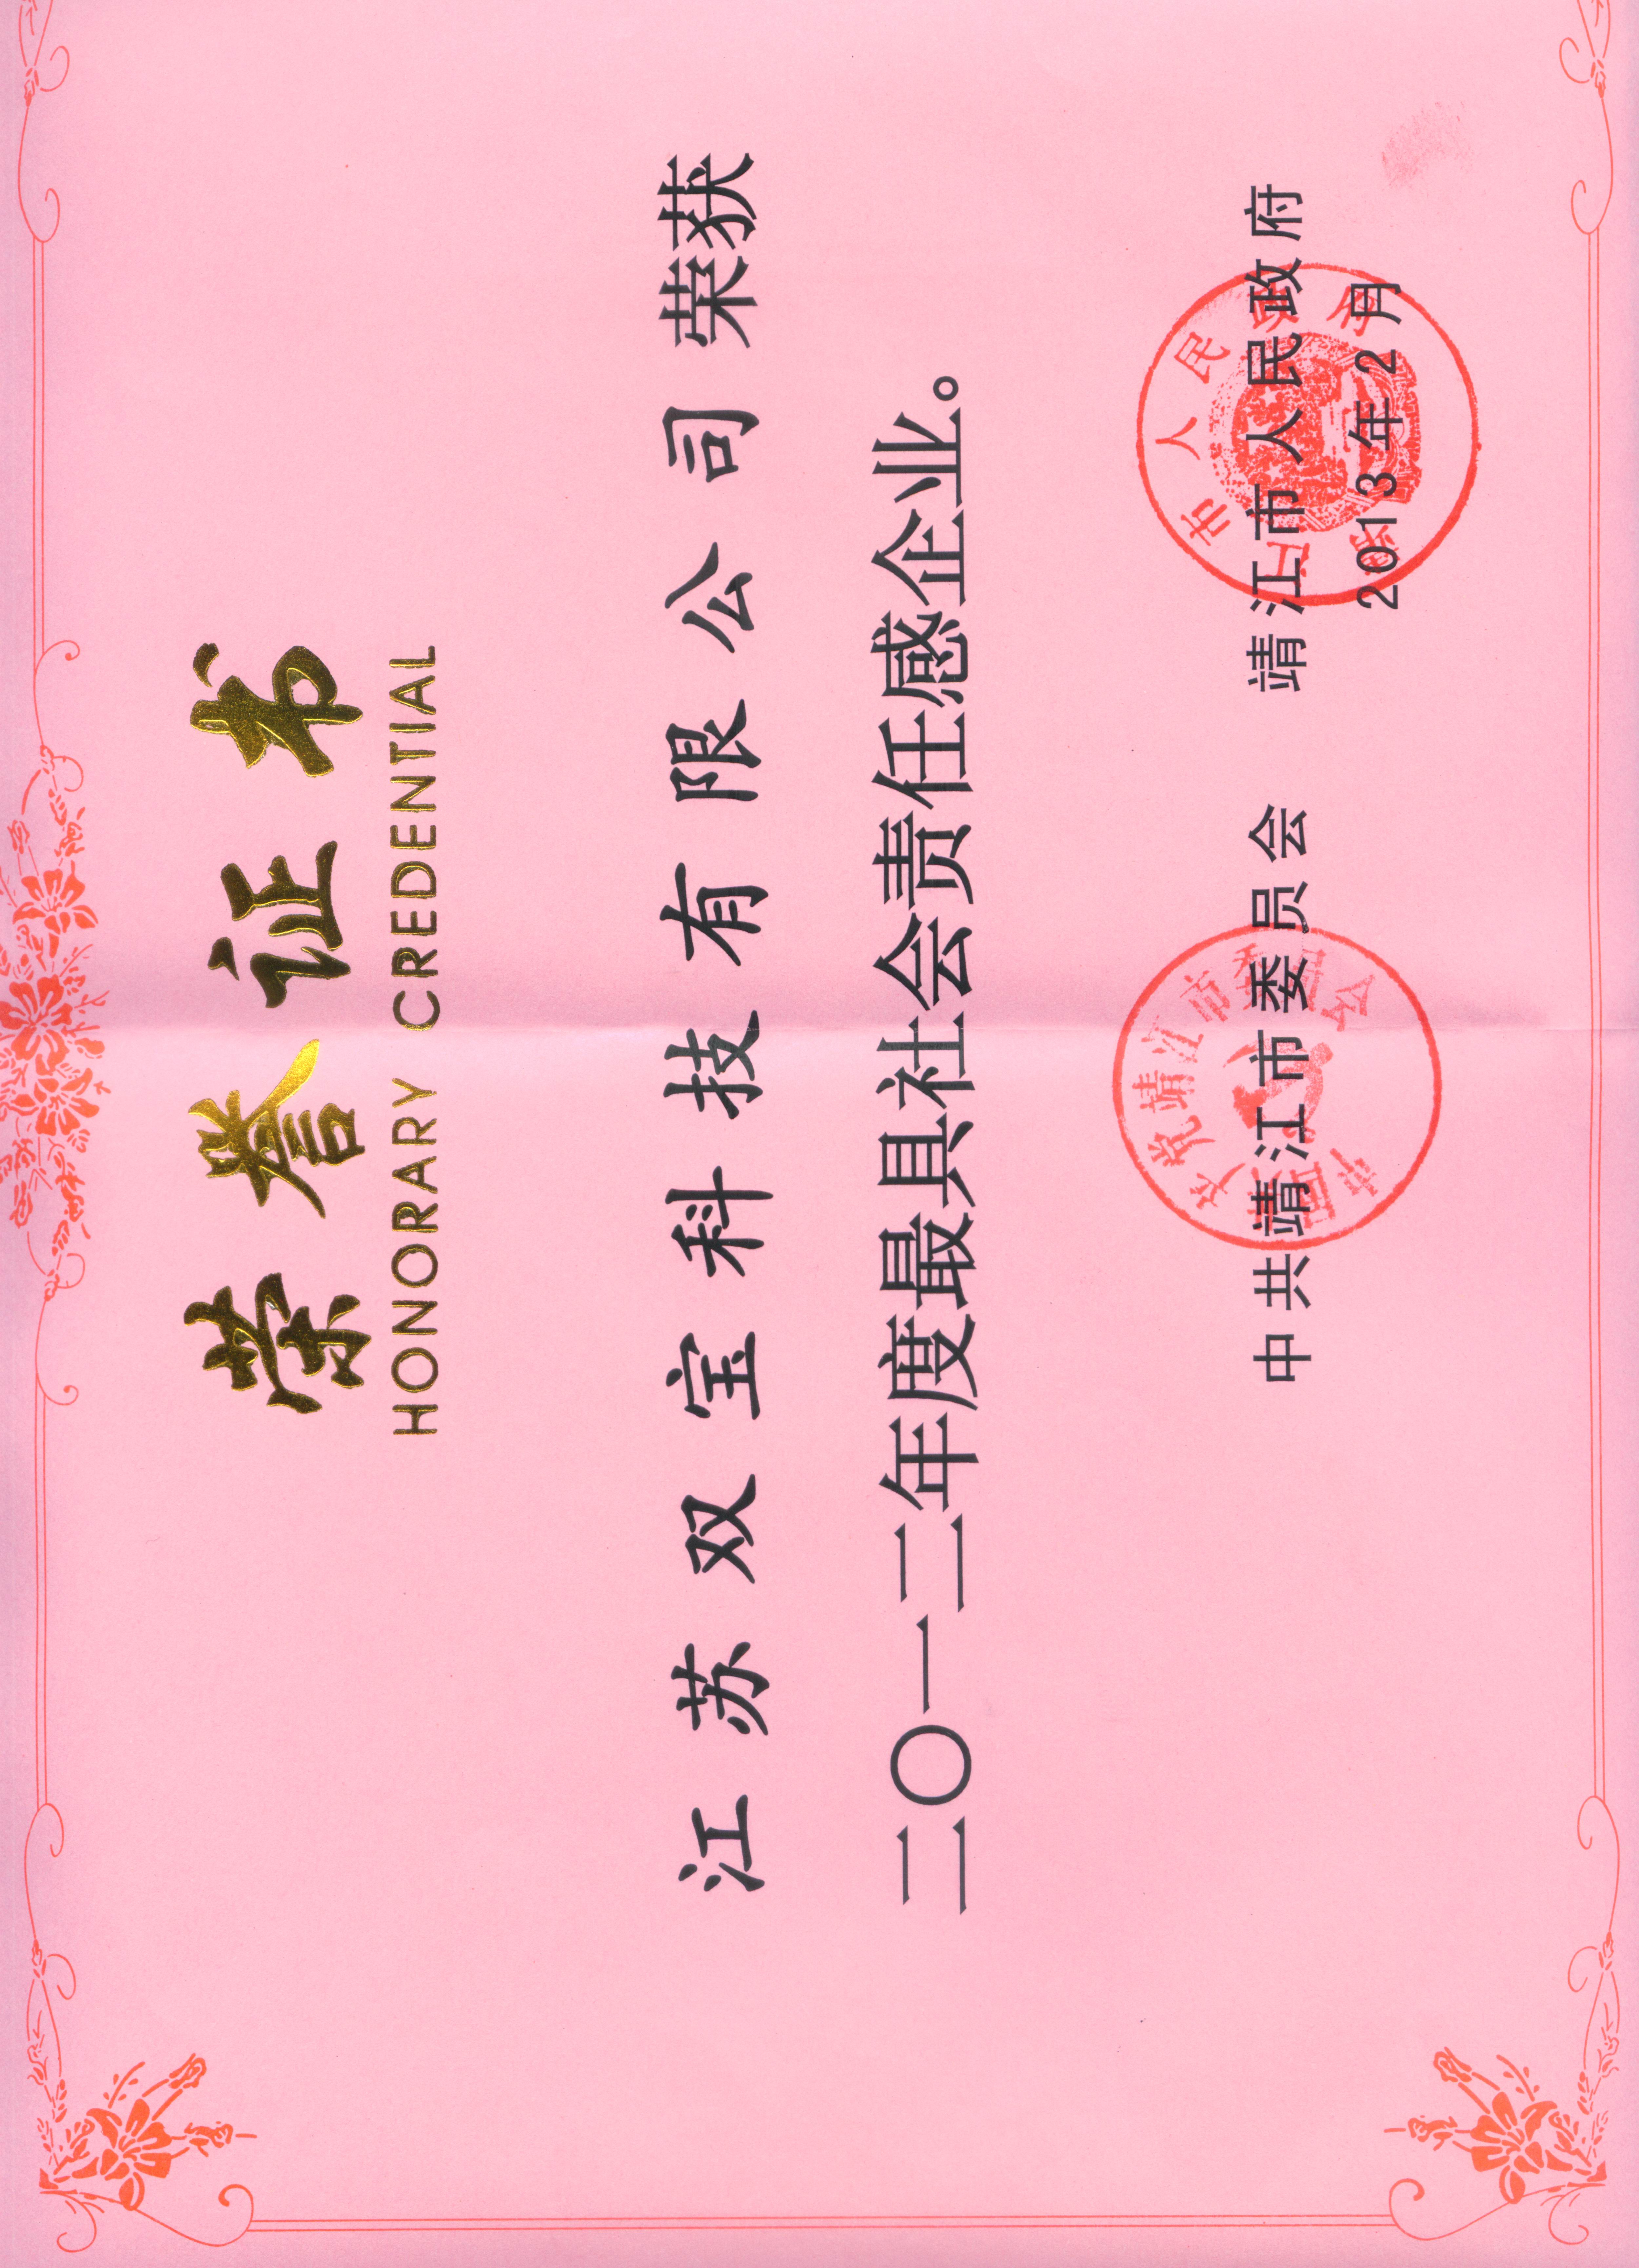 荣誉证书
HONORARY CREDENTIAL
江苏双宝科技有限公司荣获
二〇一二年度最具社会责任感企业。
中共靖江市委员会 靖江市人民政府
2013年2月
中国共产党靖江市委员会
靖江市人民政府